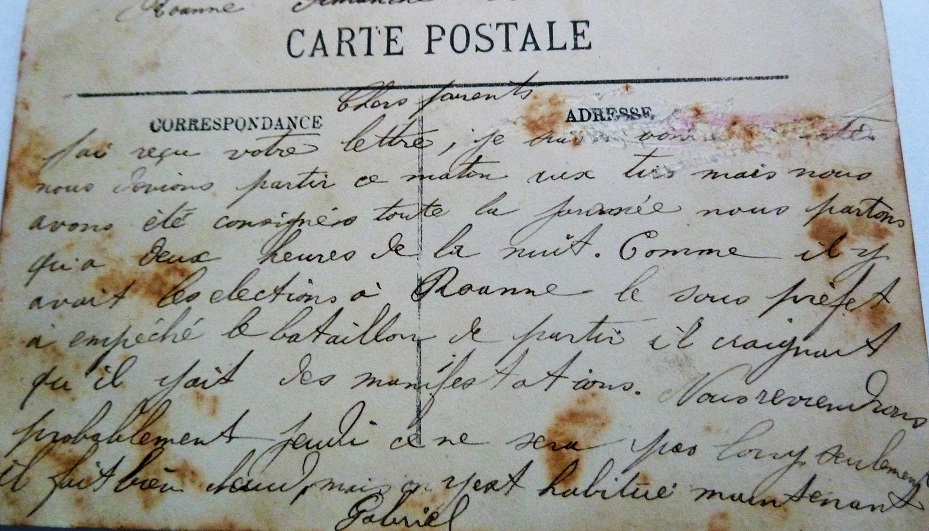 Roanne Dimanche
CARTE POSTALE
Chers parents
CORRESPONDANCE
ADRESSE
J'ai reçu votre lettre, je
nous devions partir ce matin aux tirs mais nous
avons été consignés toute la journée nous partons
qu'a deux heures de la nuit. Comme il y
avait les elections à Roanne le sous préfet
à empéché le bataillon de partir il craignait
qu'il yait des manifestations. Nous reviendrons
probablement jeudi ce ne sera pas long seulement
il fait bien chaud, mais on yest habitué maintenant
Gabriel